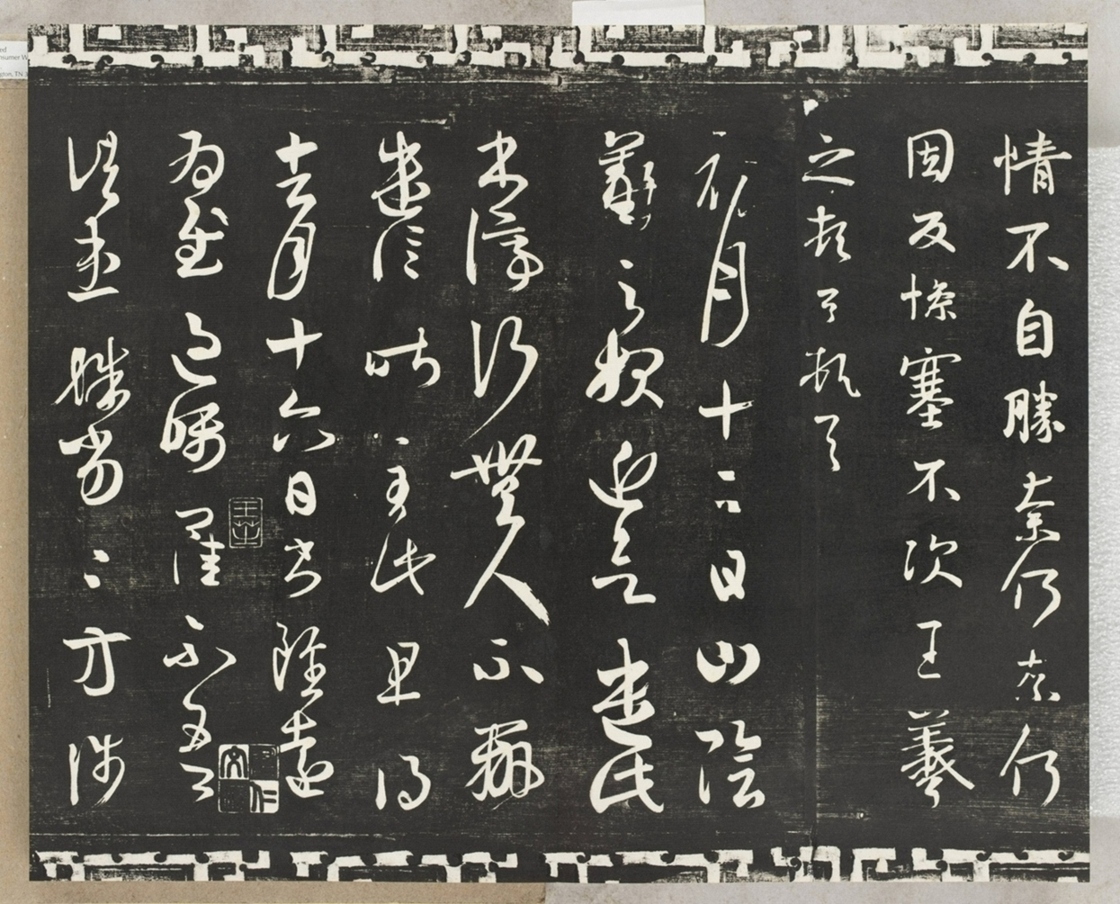 情不自勝奈何奈何
因反慘塞不次王羲
之頓首頓首
初月十二日山陰
羲之報近欲遣此
書停行無人不辦
遣信昨至此旦得
去月十六日書雖遠
為慰過囑卿佳不吾
諸患殊劣殊劣方涉